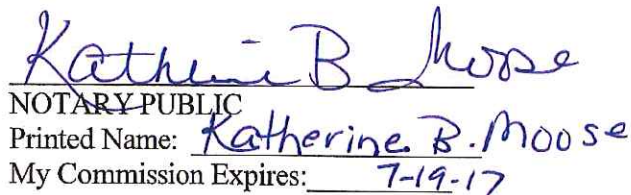 Katherine B Moose
NOTARY PUBLIC
Printed Name: Katherine B. Moose
My Commission Expires: 7-19-17